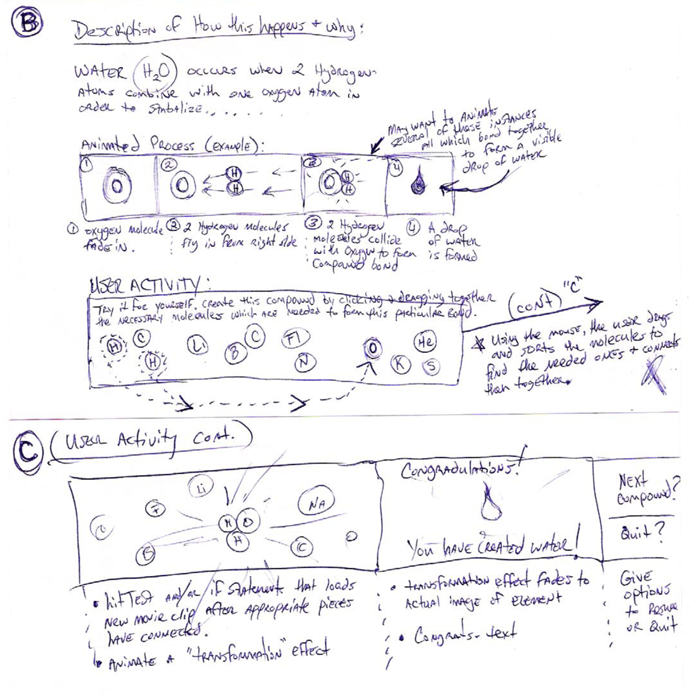 B Description of How this happens + why:
WATER (H2O) occurs when 2 Hydrogen
Atoms combine with one oxygen Atom in
order to stabalize......
May want to Animate
several of these instances
all which bond together
to form a visible
drop of water
Animated Process (example):
1 2 3 4
H
H
H
H
1 oxygen molecule
fades in.
2 2 Hydrogen molecules
fly in from right side
3 2 Hydrogen
molecules collide
with oxygen to form
compound bond
4 A drop
of water
is formed
User Activity:
Try it for yourself. Create this compound by clicking & dragging together
the necessary molecules which are needed to form this particular bond.
H C Li B C Fl N O He K S
H
(cont) "C"
* Using the mouse, the user drags
and sorts the molecules to
find the needed ones + connects
them together.
C (User Activity Cont.)
Li
NA
H O
H
C
Congradulations!
You have created water!
Next
compound?
Quit?
• hitTest and/or if statement that loads
new movie clip after appropriate pieces
have connected.
• Animate a "transformation" effect
• transformation effect fades to
actual image of element
• Congrats. text
Give
options
to
or Quit